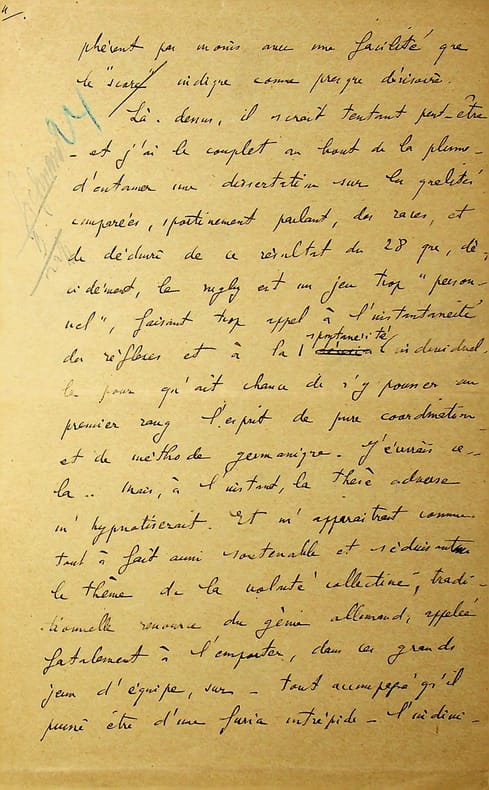 4
phèrent pas moins avec une facilité que
le "score" indique comme presque dérisoire.
Là-dessus, il serait tentant peut-être
- et j'ai le couplet au bout de la plume -
d'entamer une dissertation sur les qualités
comparées, sportivement parlant, des races, et
de déduire de ce résultat du 28 que, dé-
cidément, le rugby est un jeu trop "person-
nel", faisant trop appel à l'instantanéité
des réflexes et à la spontanéité individuel-
le pour qu'ait chance de s'y pousser au
premier rang l'esprit de pure coordination
et de méthode germanique. J'écrirais ce-
la.. Mais, à l'instant, la thèse adverse
m'hypnotiserait. Et m'apparaîtrait comme
tout à fait aussi soutenable et séduisant
le thème de la volonté collective, tradi-
tionnelle ressource du génie allemand, appelée
fatalement à l'emporter, dans ces grands
jeux d'équipe, sur - tout accompagné qu'il
puisse être d'une furia intrépide - l'indivi-